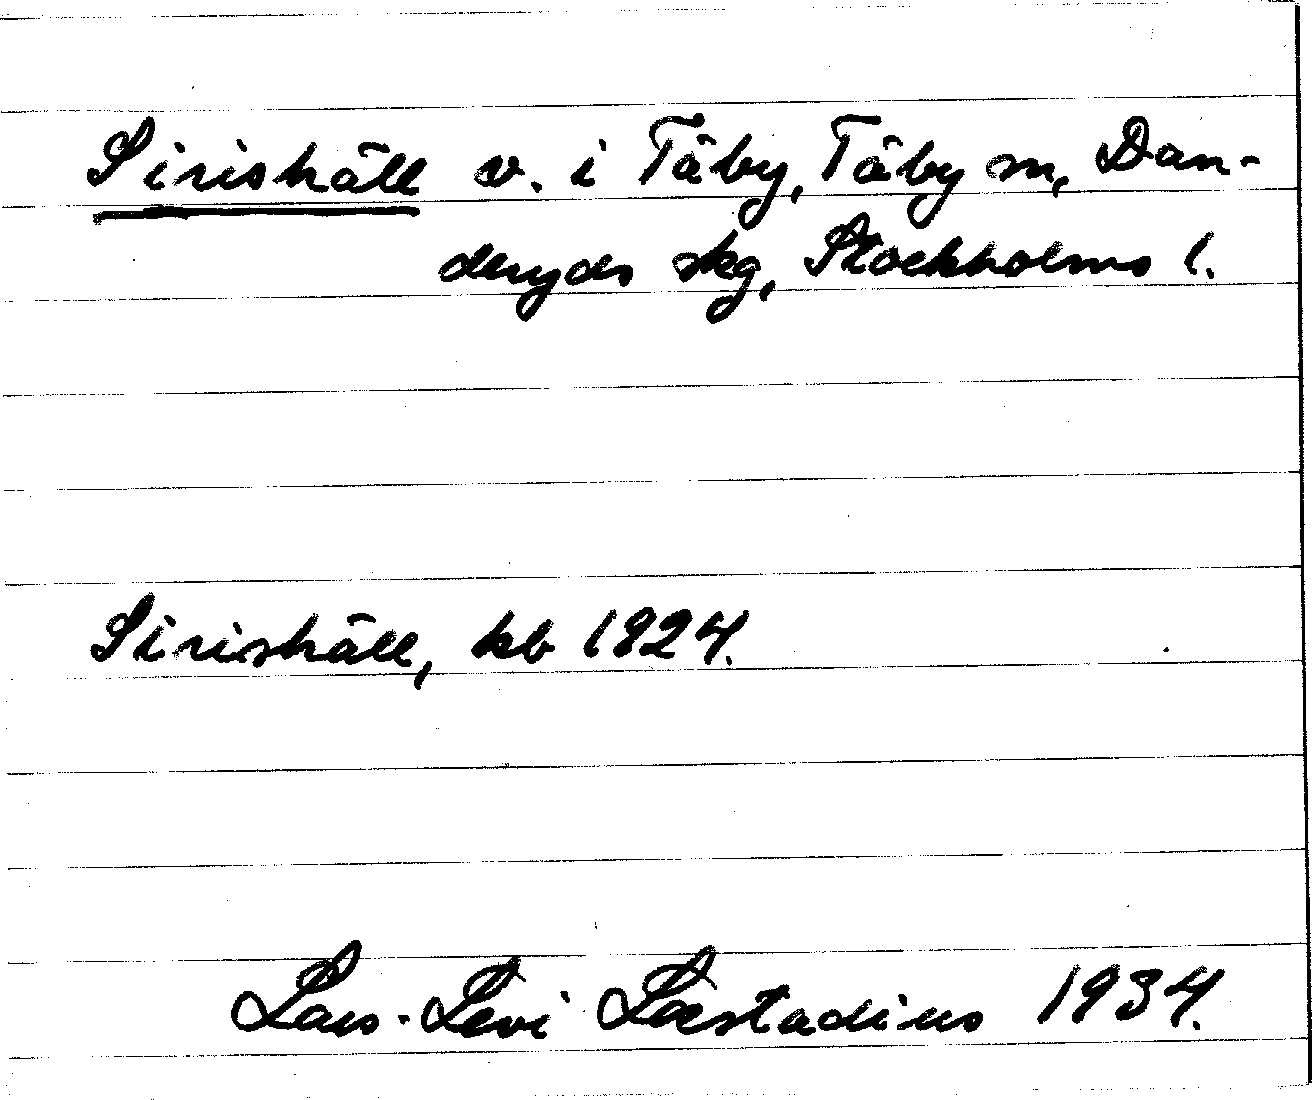 Sirishäll v. i Täby, Täby sn, Dan-
deryds skg, Stockholms l.
Sirishäll, kb 1824.
Lars-Levi Læstadius 1934.